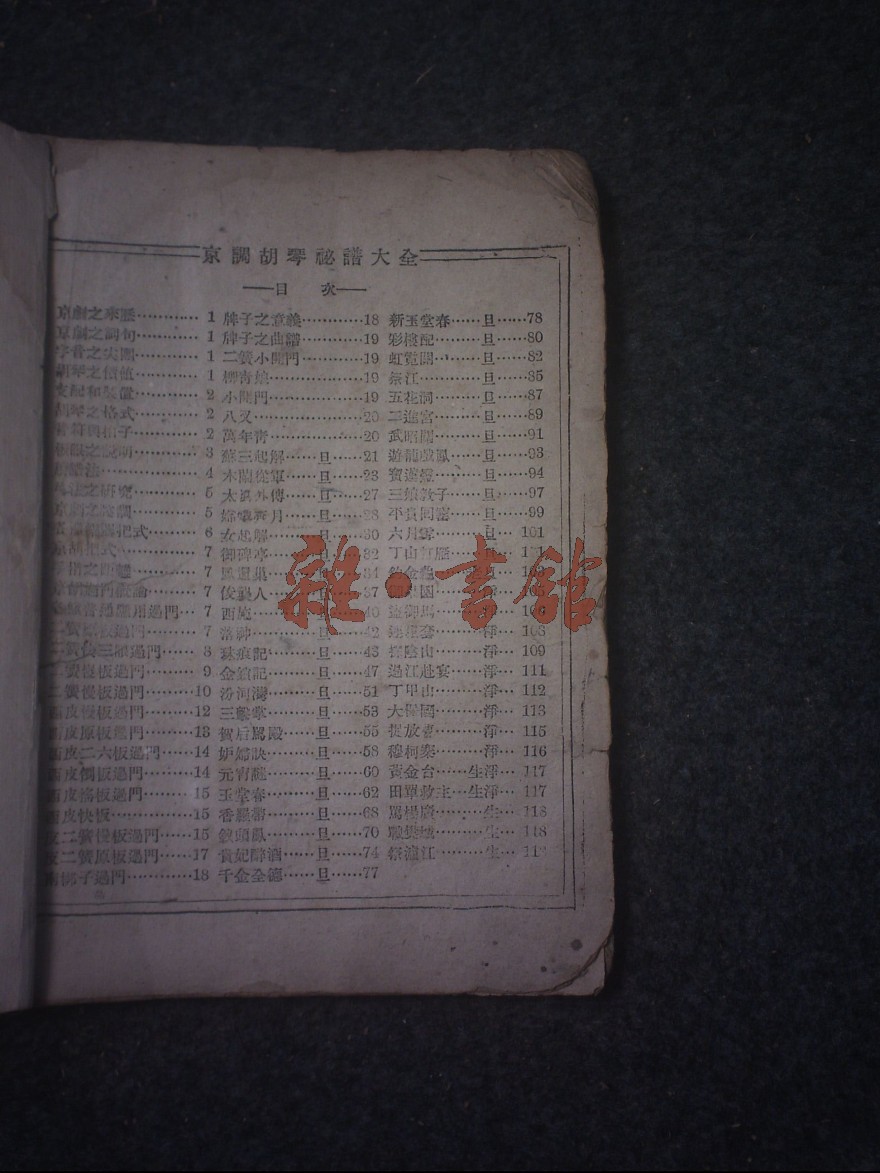 京調胡琴祕譜大全
——目 次——
京劇之來歷………… 1
京劇之詞句………… 1
字音之尖團………… 1
胡琴之價值………… 1
支配和裝置………… 2
胡琴之格式………… 2
………… 3
………… 4
之研究………… 5
………… 5
把式………… 6
京胡把式………… 7
………… 7
………… 7
應用過門… 7
二簧原板過門…… 7
二簧 三眼過門…… 8
二簧慢板過門…… 9
二簧慢板過門…… 10
西皮慢板過門…… 12
西皮原板過門…… 13
西皮二六板過門…… 14
西皮倒板過門…… 14
西皮搖板過門…… 15
西皮快板………… 15
反二簧慢板過門…… 15
反二簧原板過門…… 17
南梆子過門……… 18
牌子之意義…………18
牌子之曲譜…………19
二簧小開門…………19
柳青娘……………19
小開門……………19
八叉………………20
萬年青……………20
蘇三起解……旦……21
木蘭從軍……旦……23
太眞外傳……旦……27
嫦娥奔月……旦……28
女起解………旦……30
御碑亭………旦……32
鳳還巢………旦……34
俊襲人………旦……37
西施…………旦……40
洛神…………旦……42
………旦……43
金鎖記………旦……47
汾河灣………旦……51
三擊掌………旦……53
賀后罵殿……旦……55
妒婦訣………旦……58
元宵謎………旦……60
玉堂春………旦……62
香羅帶………旦……68
釵頭鳳………旦……70
貴妃醉酒……旦……74
千金全德……旦……77
新玉堂春……旦……78
彩樓配………旦……80
虹霓關………旦……82
祭江…………旦……85
五花洞………旦……87
二進宮………旦……89
武昭關………旦……91
遊龍戲鳳……旦……93
寶蓮燈………旦……94
三娘教子……旦……97
平貴回窰……旦……99
六月雪………旦… 101
丁山打雁……旦… 101
釣金龜
盜御馬………淨… 106
連環套………淨… 108
探陰山………淨… 109
過江赴宴……淨… 111
丁甲山………淨… 112
大保國………淨… 113
捉放曹………淨… 115
穆柯寨………淨… 116
黃金台……生淨… 117
田單救主…生淨… 117
罵楊廣………生… 118
戰樊城………生… 118
祭瀘江………生…
雜·書館